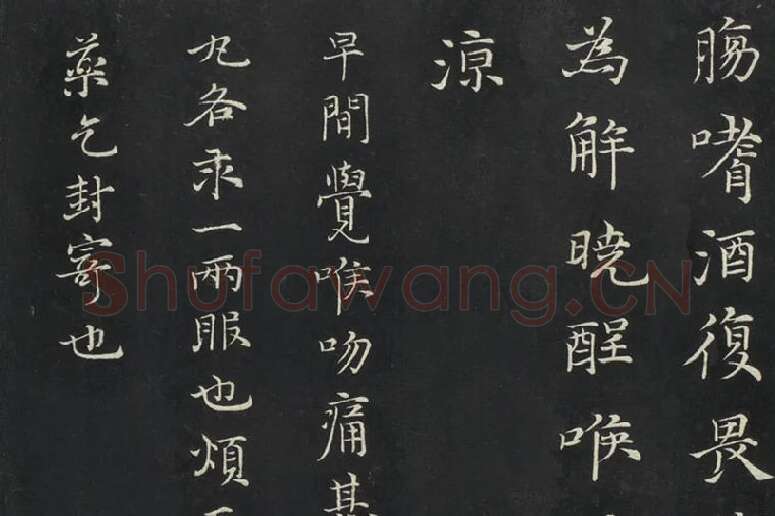 腸嗜酒復畏
為解曉酲喉
涼
早間覺喉吻痛甚
丸各求一兩服也煩
藥乞封寄也
Shufawang.CN